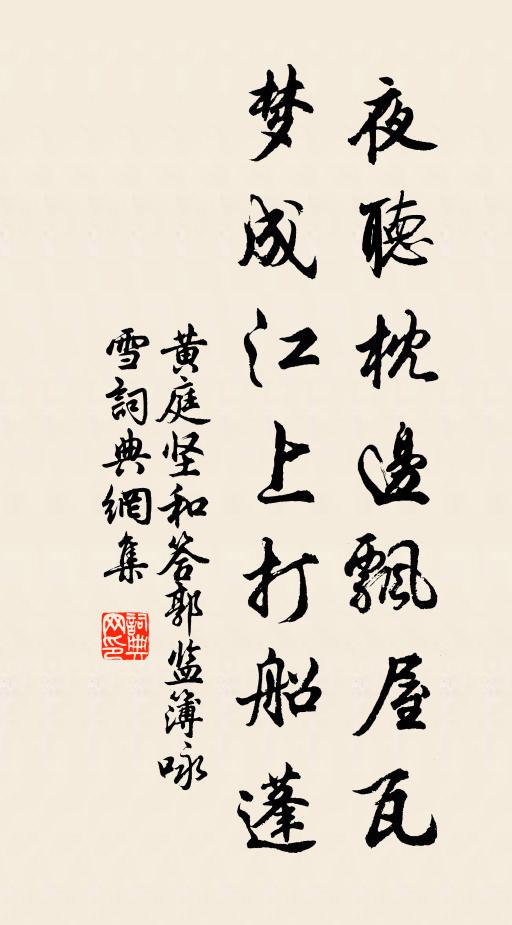 夜聽枕邊飄屋瓦
梦成江上打船蓬
黄庭坚和答郭监簿咏
雪詞典網集
詞典网印